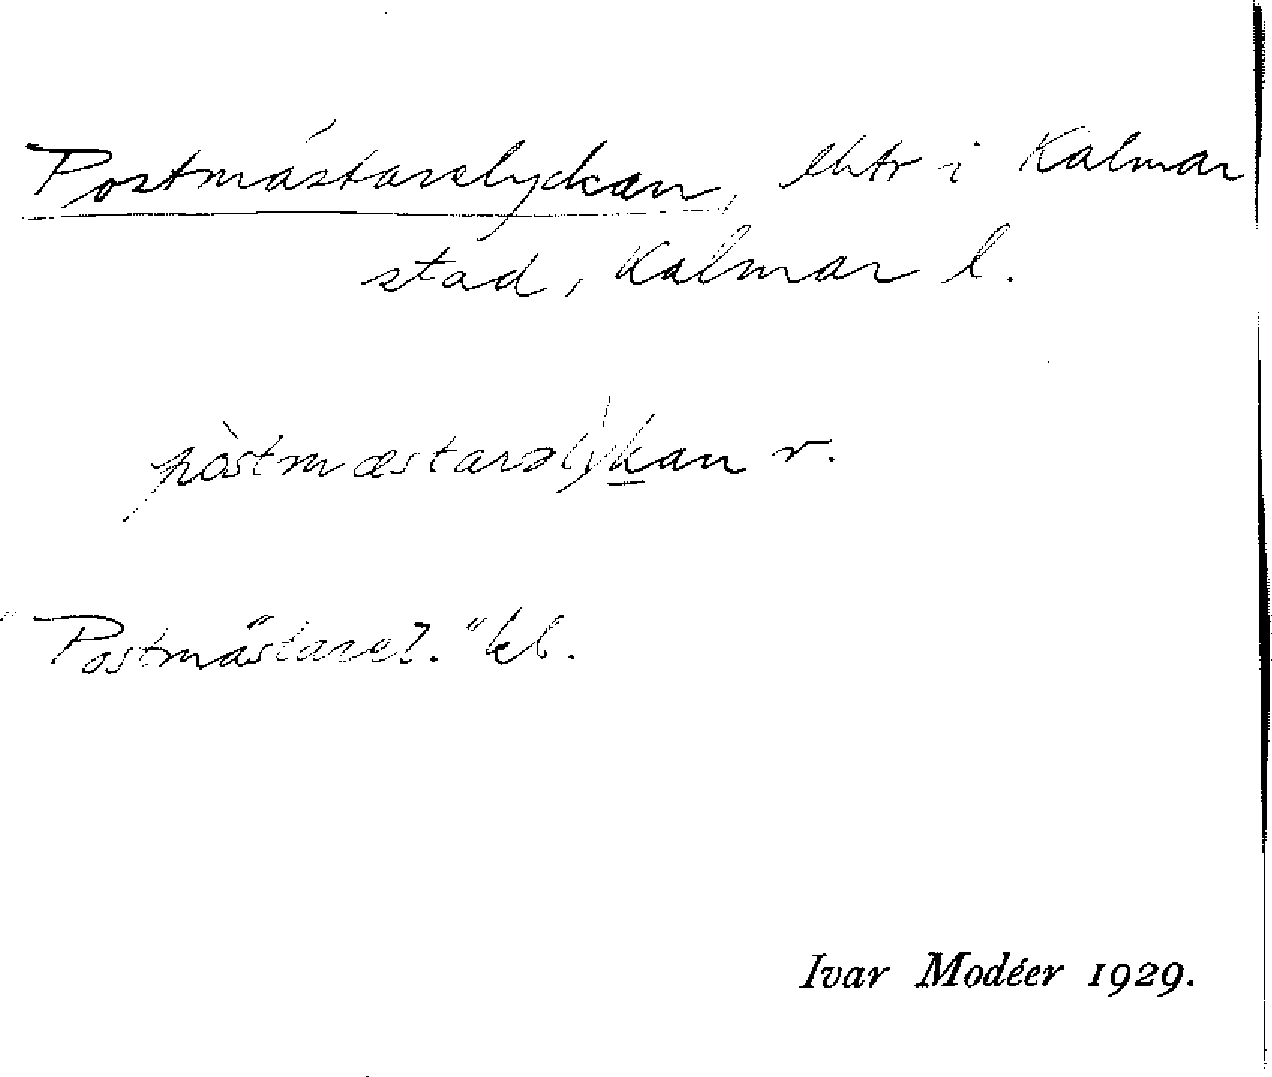 Postmästarelyckan, lhtr i Kalmar
stad, Kalmar l.
pòstmæstarəlỳkan r.
"Postmästarel." kb.
Ivar Modéer 1929.